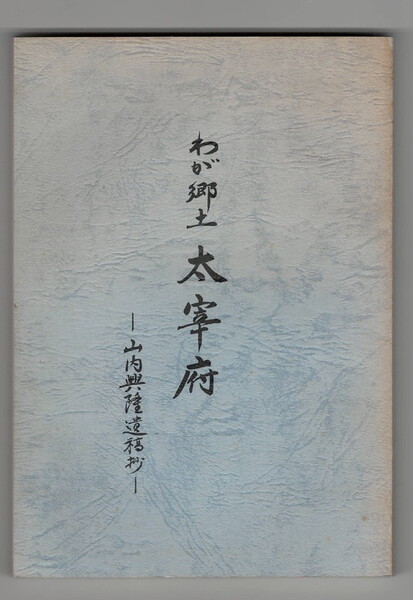 わが郷土 太宰府
―山内興隆遺稿抄―